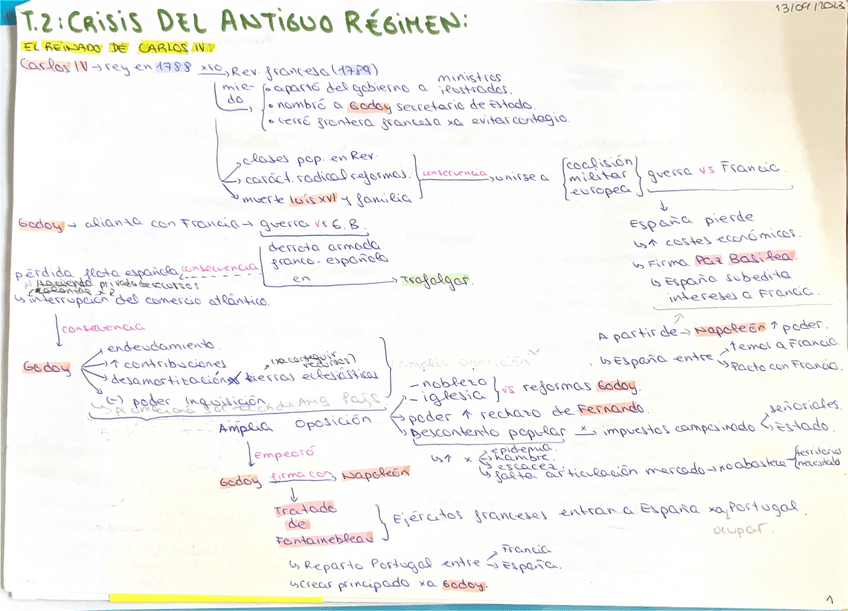 13/09/2023
T.2: CRISIS DEL ANTIGUO RÉGIMEN:
EL REINADO DE CARLOS IV:
Carlos IV → rey en 1788 xro Rev. francesa (1789)
miedo
• apartó del gobierno a ministros ilustrados.
• nombró a Godoy secretario de Estado.
• cerró frontera francesa xa evitar contagio.
clases pop. en Rev.
caráct. radical reformas.
muerte Luis XVI y familia
consecuencia
unirse a
coalisión militar europea
guerra vs Francia.
España pierde
↳ ↑ costes económicos.
↳ Firma Paz Basilea.
↳ España subedita intereses a Francia.
Godoy → alianza con Francia → guerra vs G.B.
derrota armada franco-española
en → Trafalgar.
consecuencia
pérdida flota española
Hacienda privada recursos
↳ interrupción del comercio atlántico.
A partir de → Napoleón ↑ poder.
↳ España entre
temor a Francia
Pacto con Francia.
consecuencia
Godoy
endeudamiento.
↑ contribuciones
desamortización tierras eclesiásticas
(xa conseguir recursos)
(-) poder Inquisición
Amplia oposición
nobleza
iglesia
vs reformas Godoy.
poder ↑ rechazo de Fernando.
Descontento popular x impuestos campesinado
señoriales.
Estado.
↳ ↑ x
epidemia.
hambre.
escacez
falta articulación mercado → no abastece
territorios necesitado
Empeoró
Godoy firma con Napoleón
Tratado de Fontainebleau
Ejércitos franceses entran a España xa Portugal.
ocupar.
↳ Reparto Portugal entre
Francia.
España.
↳ crear principado xa Godoy.
1